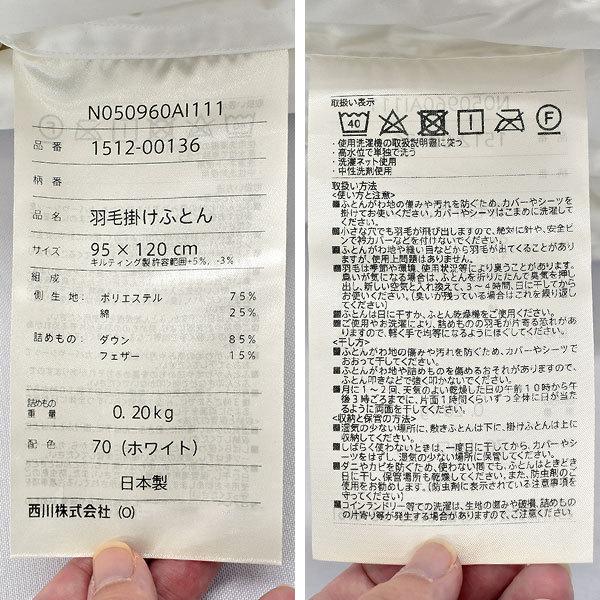 N050960AI111
品番 1512-00136
柄番
品名 羽毛掛けふとん
サイズ 95×120cm
キルティング製許容範囲+5%、-3%
組成
側生地: ポリエステル 75%
綿 25%
詰めもの: ダウン 85%
フェザー 15%
詰めもの重量 0.20kg
配色 70(ホワイト)
日本製
西川株式会社(O)
取扱い表示
40
F
・使用洗濯機の取扱説明書に従う
・高水位で単独で洗う
・洗濯ネット使用
・中性洗剤使用
取扱い方法
<使い方と注意>
■ふとんがわ地の傷みや汚れを防ぐため、カバーやシーツを
掛けてお使いください。カバーやシーツはこまめに洗濯して
ください。
■小さな穴でも羽毛が飛び出しますので、絶対に針や、安全ピ
ンで衿カバーなどを付けないでください。
■ふとんがわ地や縫い目などから羽毛が出てくることがあり
ますが、使用上問題はありません。
■羽毛は季節や環境、使用状況等により臭うことがあります。
臭いが気になる場合は、ふとんを折りたたんで臭気を押し
出し、新しい空気と入れ換えて、3〜4時間、日に干してから
お使いください。(臭いが残っている場合はこれを繰り返し
てください)
■ふとんは日に干すか、ふとん乾燥機をご使用ください。
■ご使用やお洗濯により、詰めものの羽毛が片寄る恐れがあ
りますので、軽く手で均等になるようにほぐしてください。
<干し方>
■ふとんがわ地の傷みや汚れを防ぐため、カバーやシーツで
おおって干してください。
■ふとんがわ地や詰めものを傷めるおそれがありますので、
ふとん叩きなどで強く叩かないでください。
■月に1〜2回、天気のよい乾燥した日の午前10時から午
後3時ごろまでに、片面1時間くらいずつ全体に日が当た
るように両面を干してください。
<収納と保管の方法>
■湿気の多い場所に、敷きふとんは下に、掛けふとんは上に
収納してください。
■しばらく使わないときは、一度日に干してから、カバーやシー
ツをはずし、湿気の少ない場所に保管してください。
■ダニやカビを防ぐため、使わない間でも、ふとんはときどき
日に干し、保管場所も乾燥してください。また、防虫剤のご
使用をお勧めします。(防虫剤に表示されている注意事項を
守ってください)
■コインランドリー等での洗濯は、生地の傷みや破損、詰めもの
の片寄り等が発生する場合がありますので、ご注意ください。